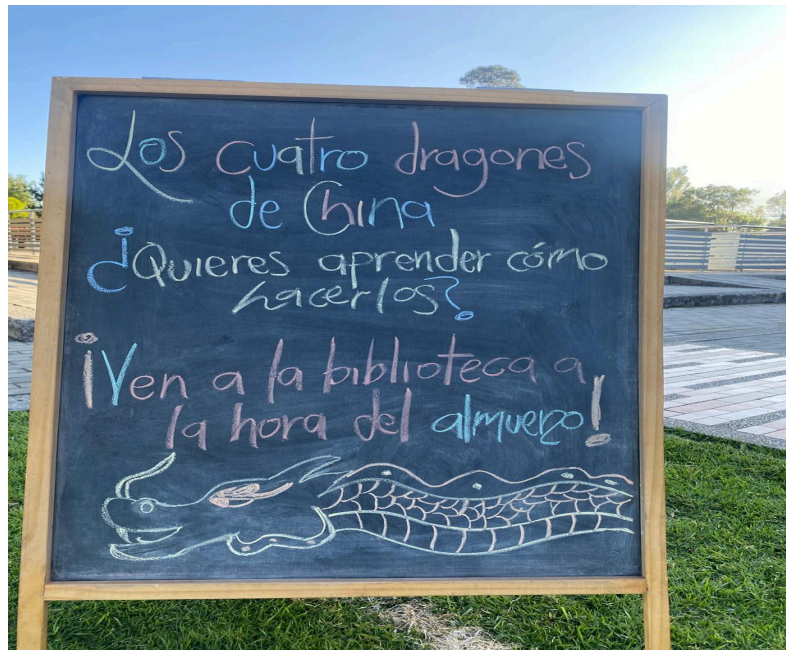 Los cuatro dragones
de China
¿Quieres aprender cómo
hacerlos?
¡Ven a la biblioteca a
la hora del almuerzo!